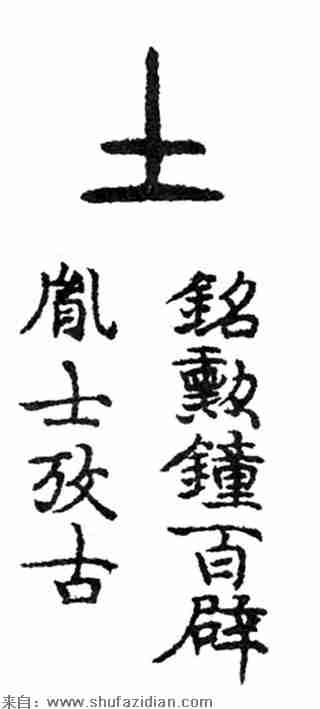 土
銘勳鐘百辟
胤士攷古
来自：www.shufazidian.com